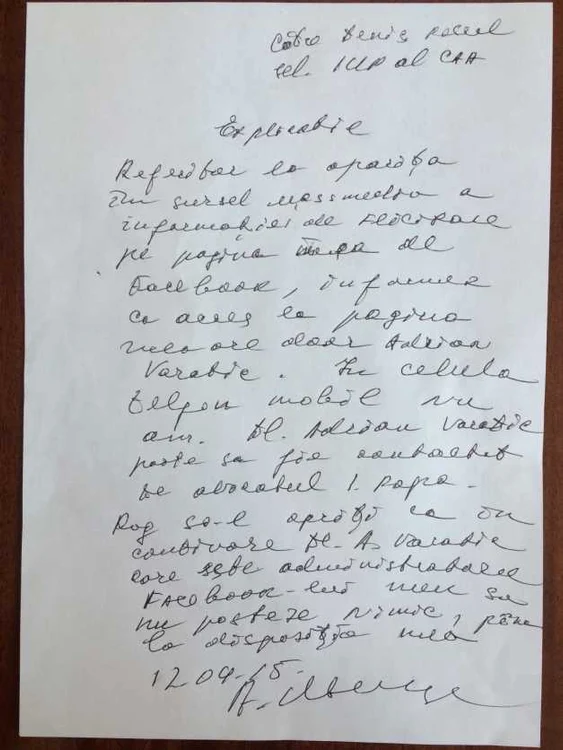 Către Denis
șef. IUP al CAA
Explicație
Referitor la apariția
în sursel massmedia a
informației de felicitare
pe pagina mea de
Facebook, informez
ca acces la pagina
mea are doar Adrian
Varatic. În celula
telefon mobil nu
am. Dl. Adrian Varatic
poate sa fie contactat
de avocatul I. Popa.
Rog sa-l opriți ca în
continuare Dl. A. Varatic
care este administratorul
Facebook-lui meu sa
nu posteze nimic, pâna
la dispoziția mea
12 09.15.